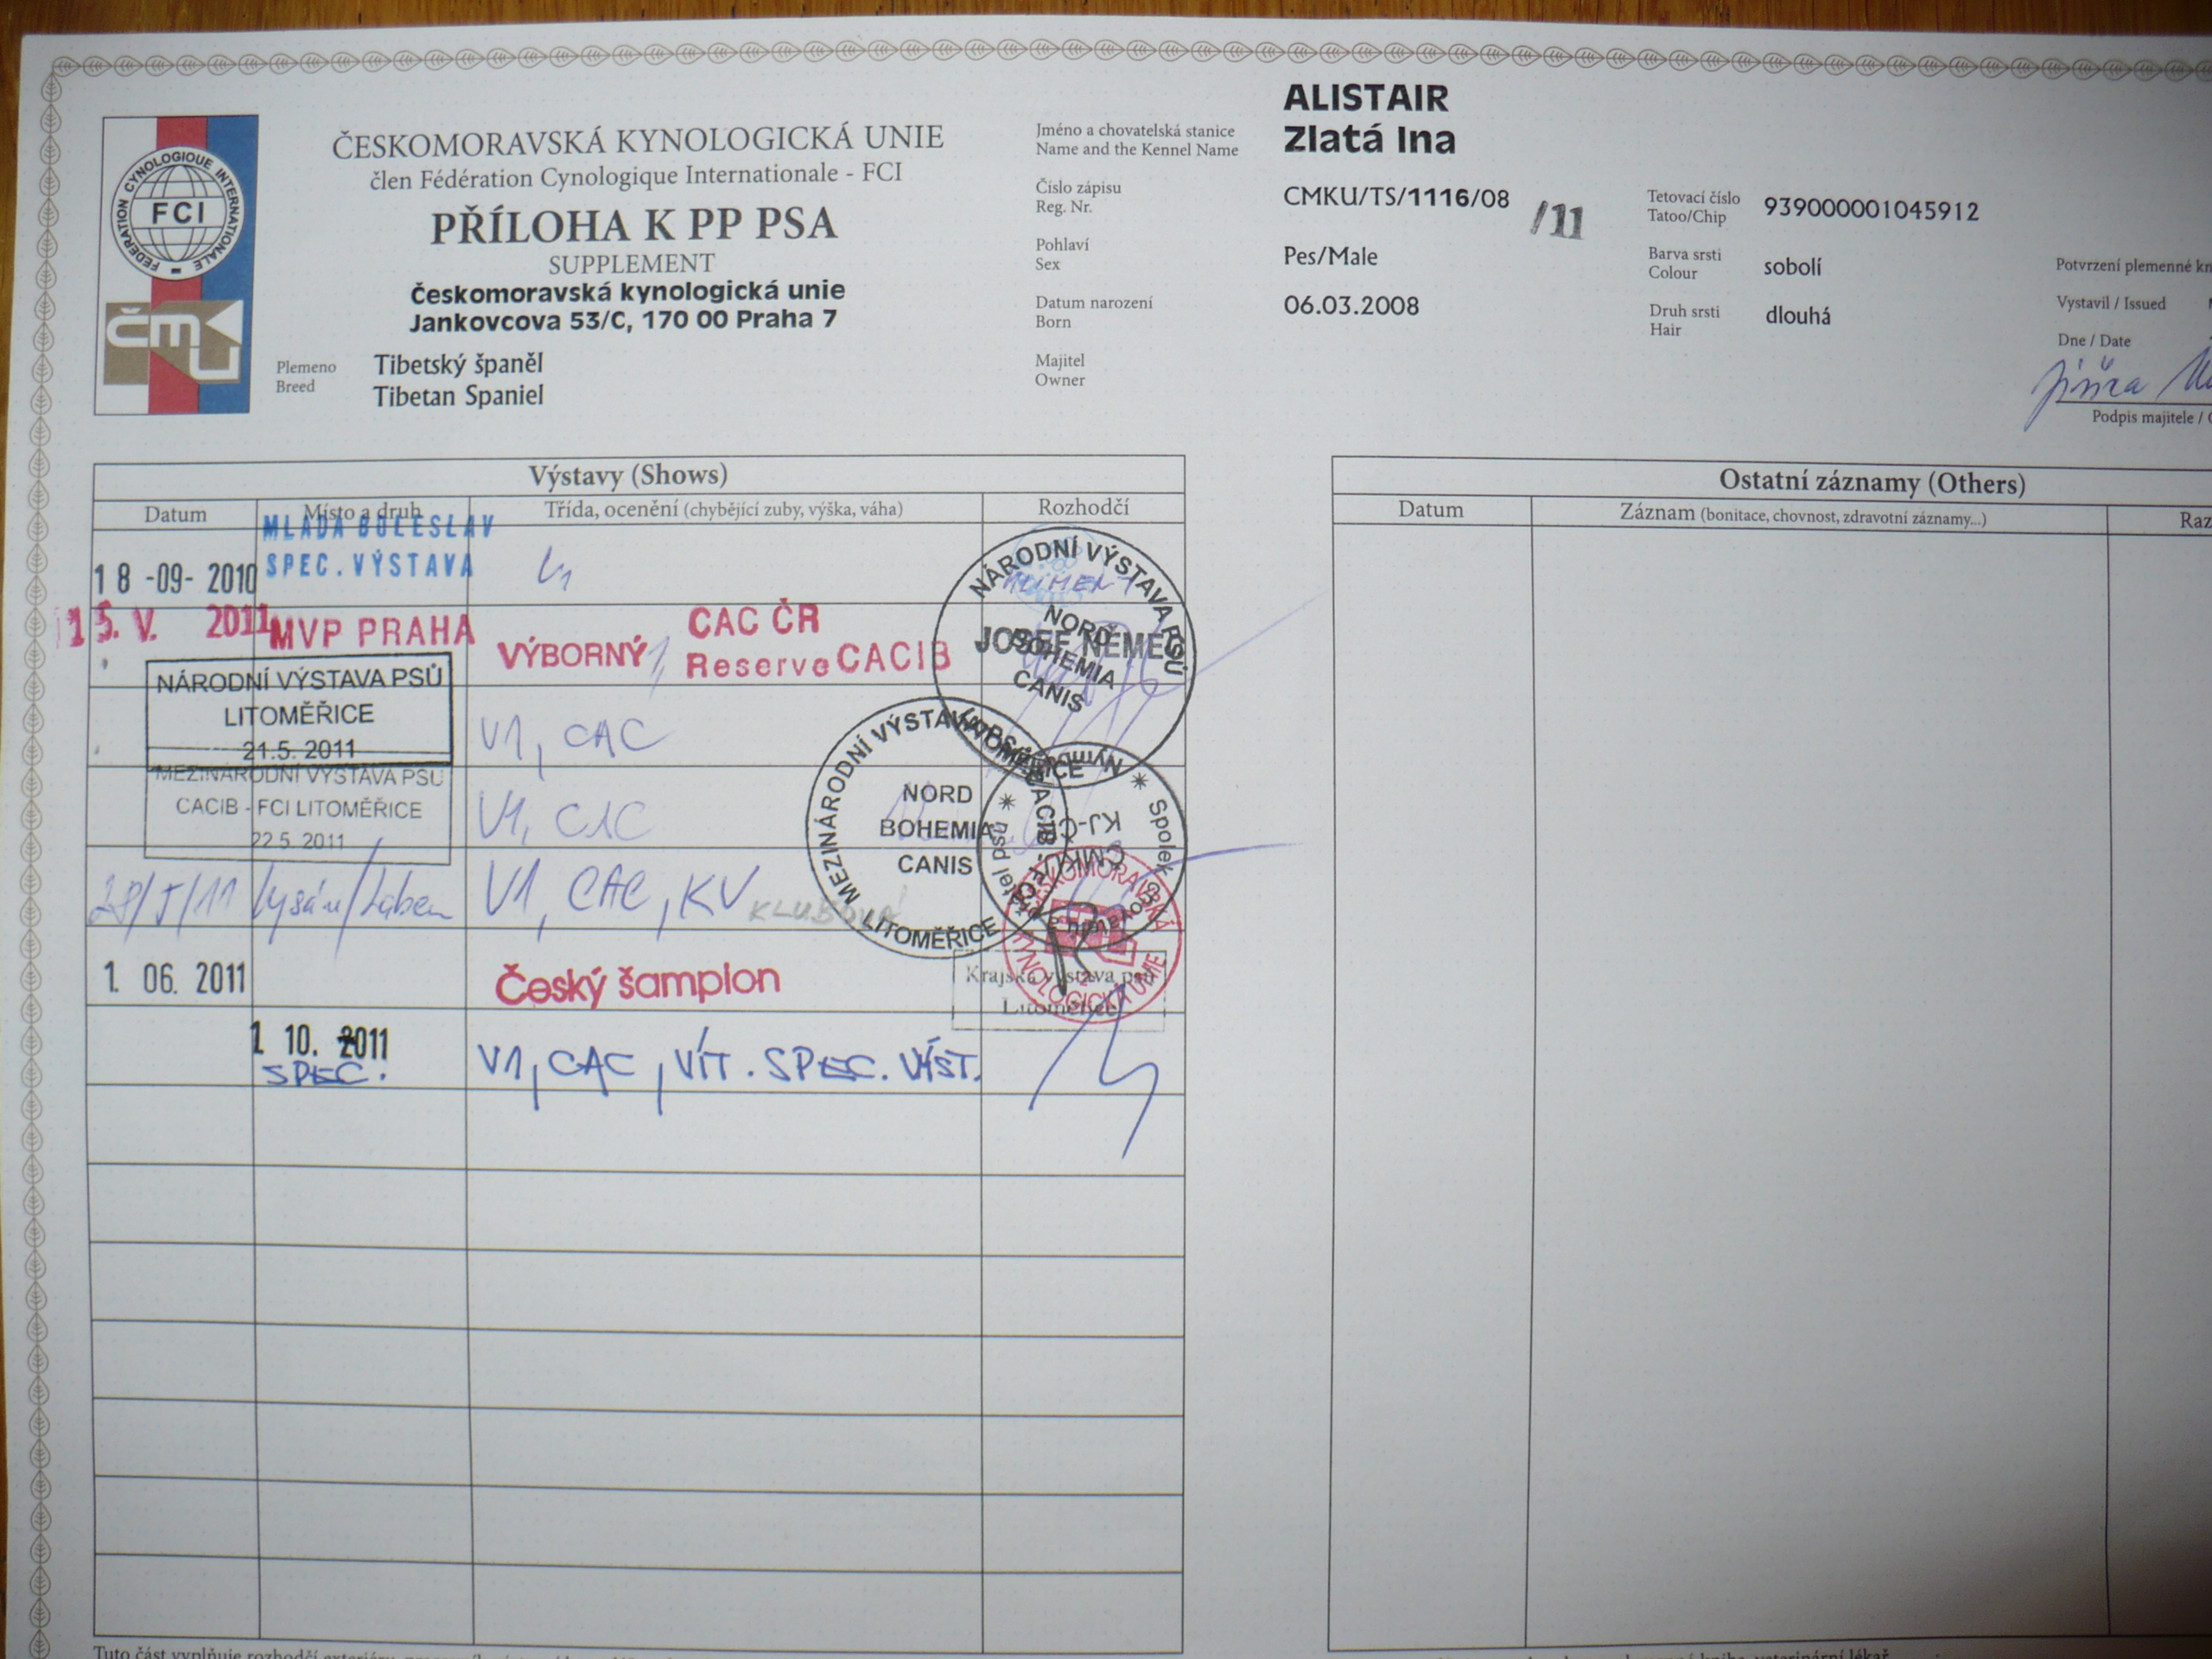 ČESKOMORAVSKÁ KYNOLOGICKÁ UNIE
člen Fédération Cynologique Internationale - FCI
PŘÍLOHA K PP PSA
SUPPLEMENT
Českomoravská kynologická unie
Jankovcova 53/C, 170 00 Praha 7
FEDERATION CYNOLOGIQUE INTERNATIONALE
FCI
ČMKU
Plemeno Tibetský španěl
Breed Tibetan Spaniel
Jméno a chovatelská stanice ALISTAIR
Name and the Kennel Name Zlatá Ina
Číslo zápisu CMKU/TS/1116/08 /11
Reg. Nr.
Pohlaví Pes/Male
Sex
Datum narození 06.03.2008
Born
Majitel
Owner
Tetovací číslo 939000001045912
Tatoo/Chip
Barva srsti sobolí
Colour
Druh srsti dlouhá
Hair
Potvrzení plemenné
Vystavil / Issued
Dne / Date
Podpis majitele /
Výstavy (Shows)
Datum Místo a druh Třída, ocenění (chybějící zuby, výška, váha) Rozhodčí
18 -09- 2010 MLADÁ BOLESLAV
SPEC. VÝSTAVA
15. V. 2011 MVP PRAHA VÝBORNÝ 1 CAC ČR
Reserve CACIB JOSEF NĚMEC
NÁRODNÍ VÝSTAVA PSŮ
LITOMĚŘICE
21.5. 2011
V1, CAC
MEZINÁRODNÍ VÝSTAVA PSŮ
CACIB - FCI LITOMĚŘICE
22.5. 2011
V1, CAC
28/5/11 Lysá n/Labem V1, CAC, KV KLUBOVÁ
1. 06. 2011 Český šampion
1 10. 2011
SPEC. V1, CAC, VÍT. SPEC. VÝST.
NÁRODNÍ VÝSTAVA PSŮ
NORD
BOHEMIA
CANIS
LITOMĚŘICE
MEZINÁRODNÍ VÝSTAVA PSŮ CACIB - FCI
NORD
BOHEMIA
CANIS
LITOMĚŘICE
Spolek
KJ-ČR
ČMKU
ČESKOMORAVSKÁ
KYNOLOGICKÁ UNIE
Krajská výstava psů
Litoměřice
Ostatní záznamy (Others)
Datum Záznam (bonitace, chovnost, zdravotní záznamy...)
Tuto část vyplňuje rozhodčí exteriéru,
kniha, veterinární lékař